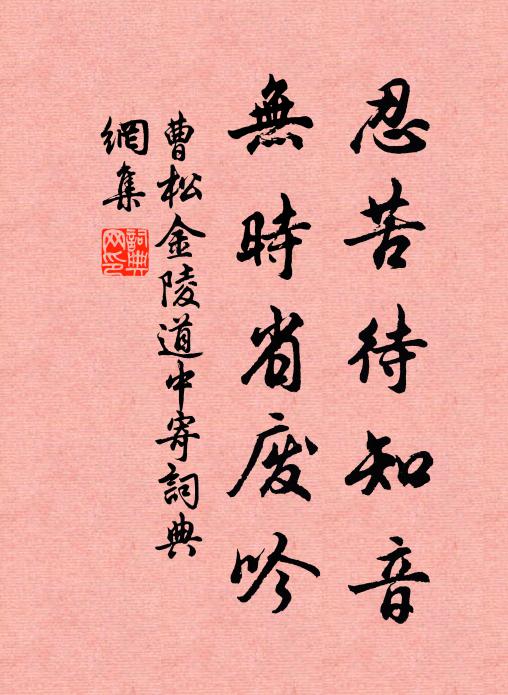 忍苦待知音
無時省废吟
曹松金陵道中寄詞典
網集
詞典
网印